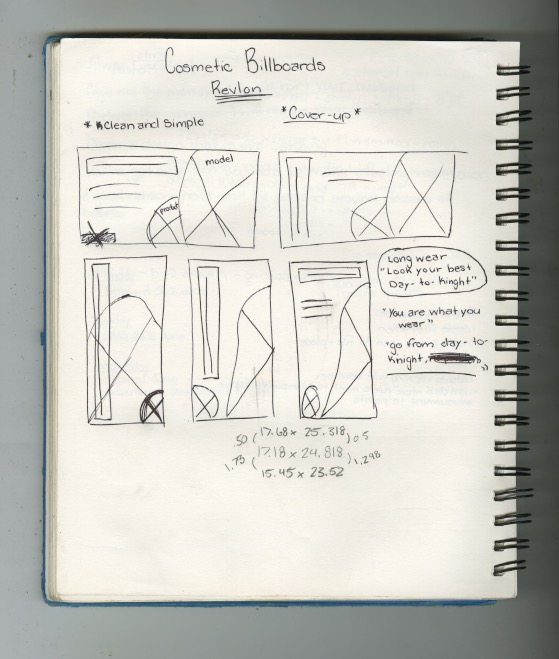 Cosmetic Billboards
Revlon
* Clean and Simple
*Cover-up*
model
Long wear
"Look your best
Day-to-Kinght"
"You are what you
wear"
"go from day-to-
Knight,
"
17.68 x 25.318
.50 ( ) 0.5
17.18 x 24.818
1.73 ( ) 1.298
15.45 x 23.52